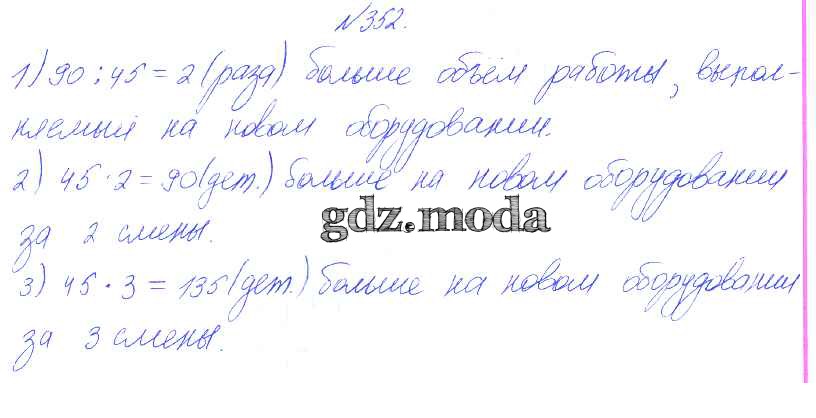 №352.
1) 90 : 45 = 2 (раза) больше объём работы, выпол-
няемый на новом оборудовании.
2) 45 · 2 = 90 (дет.) больше на новом оборудовании
за 2 смены.
gdz.moda
3) 45 · 3 = 135 (дет.) больше на новом оборудовании
за 3 смены.